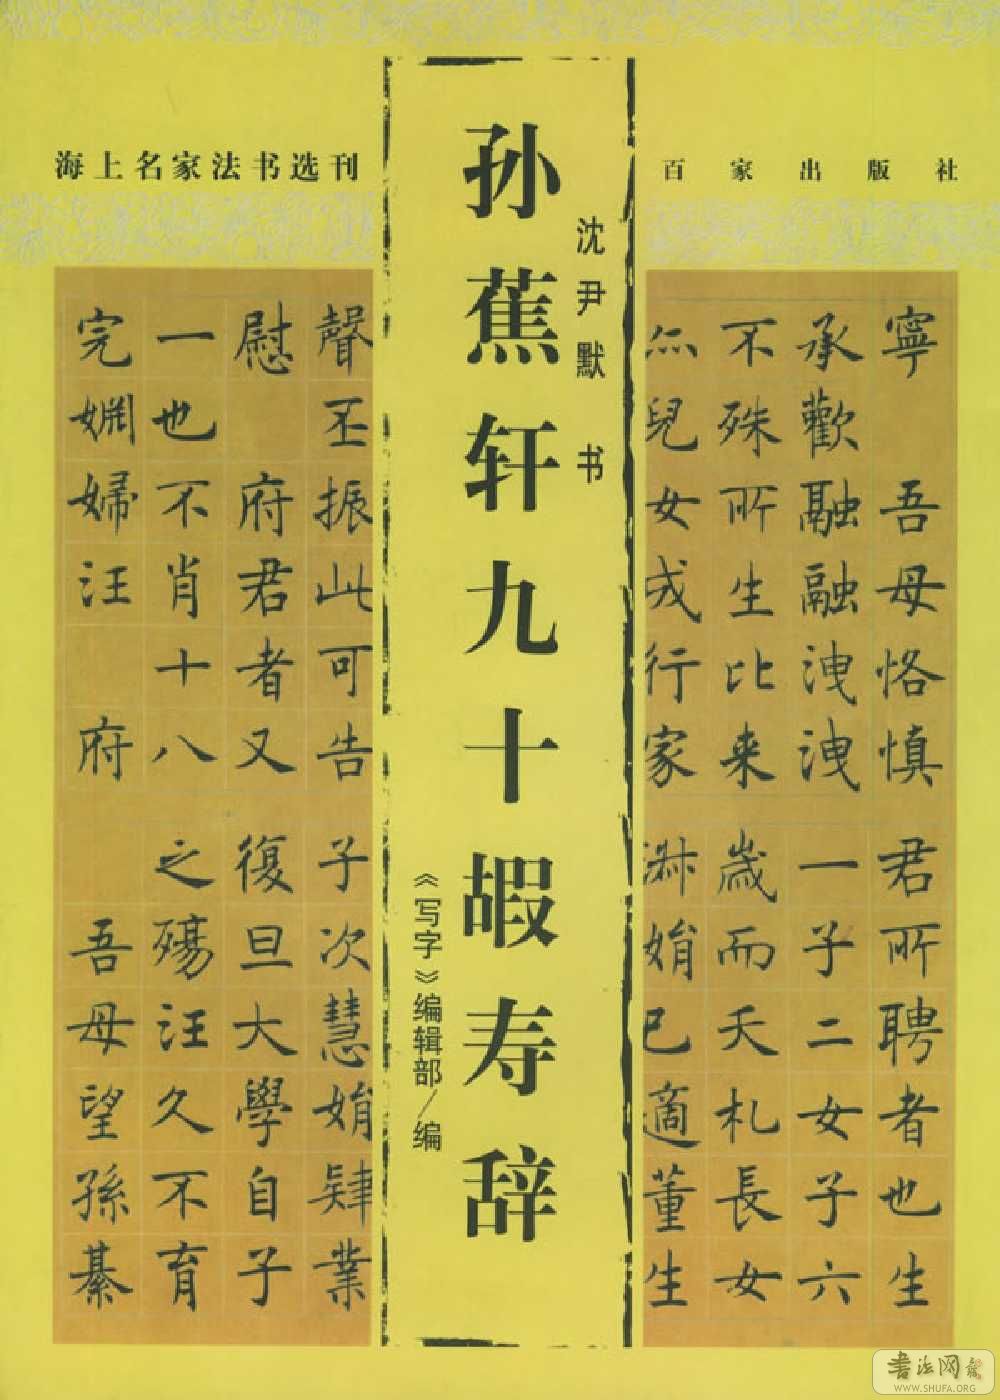 海上名家法书选刊
百家出版社
孙蕉轩九十嘏寿辞
沈尹默 书
《写字》编辑部/编
寧 吾母恪慎
承歡融融洩洩
不殊所生比来
兒女成行家
聲丕振此可告
慰 府君者又
一也不肖十八
完姻婦汪 府
君所聘者也生
一子二女子六
歲而夭札長女
淑娟已適董生
子次慧娟肄業
復旦大學自子
之殤汪久不育
吾母望孫綦
书法网
WWW.SHUFA.ORG